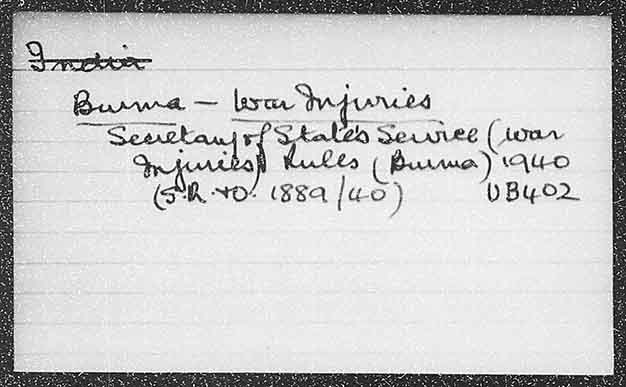 India
Burma - War Injuries
Secretary of State's Service (War
Injuries) Rules (Burma) 1940
(S.R. & O. 1889/40) UB402